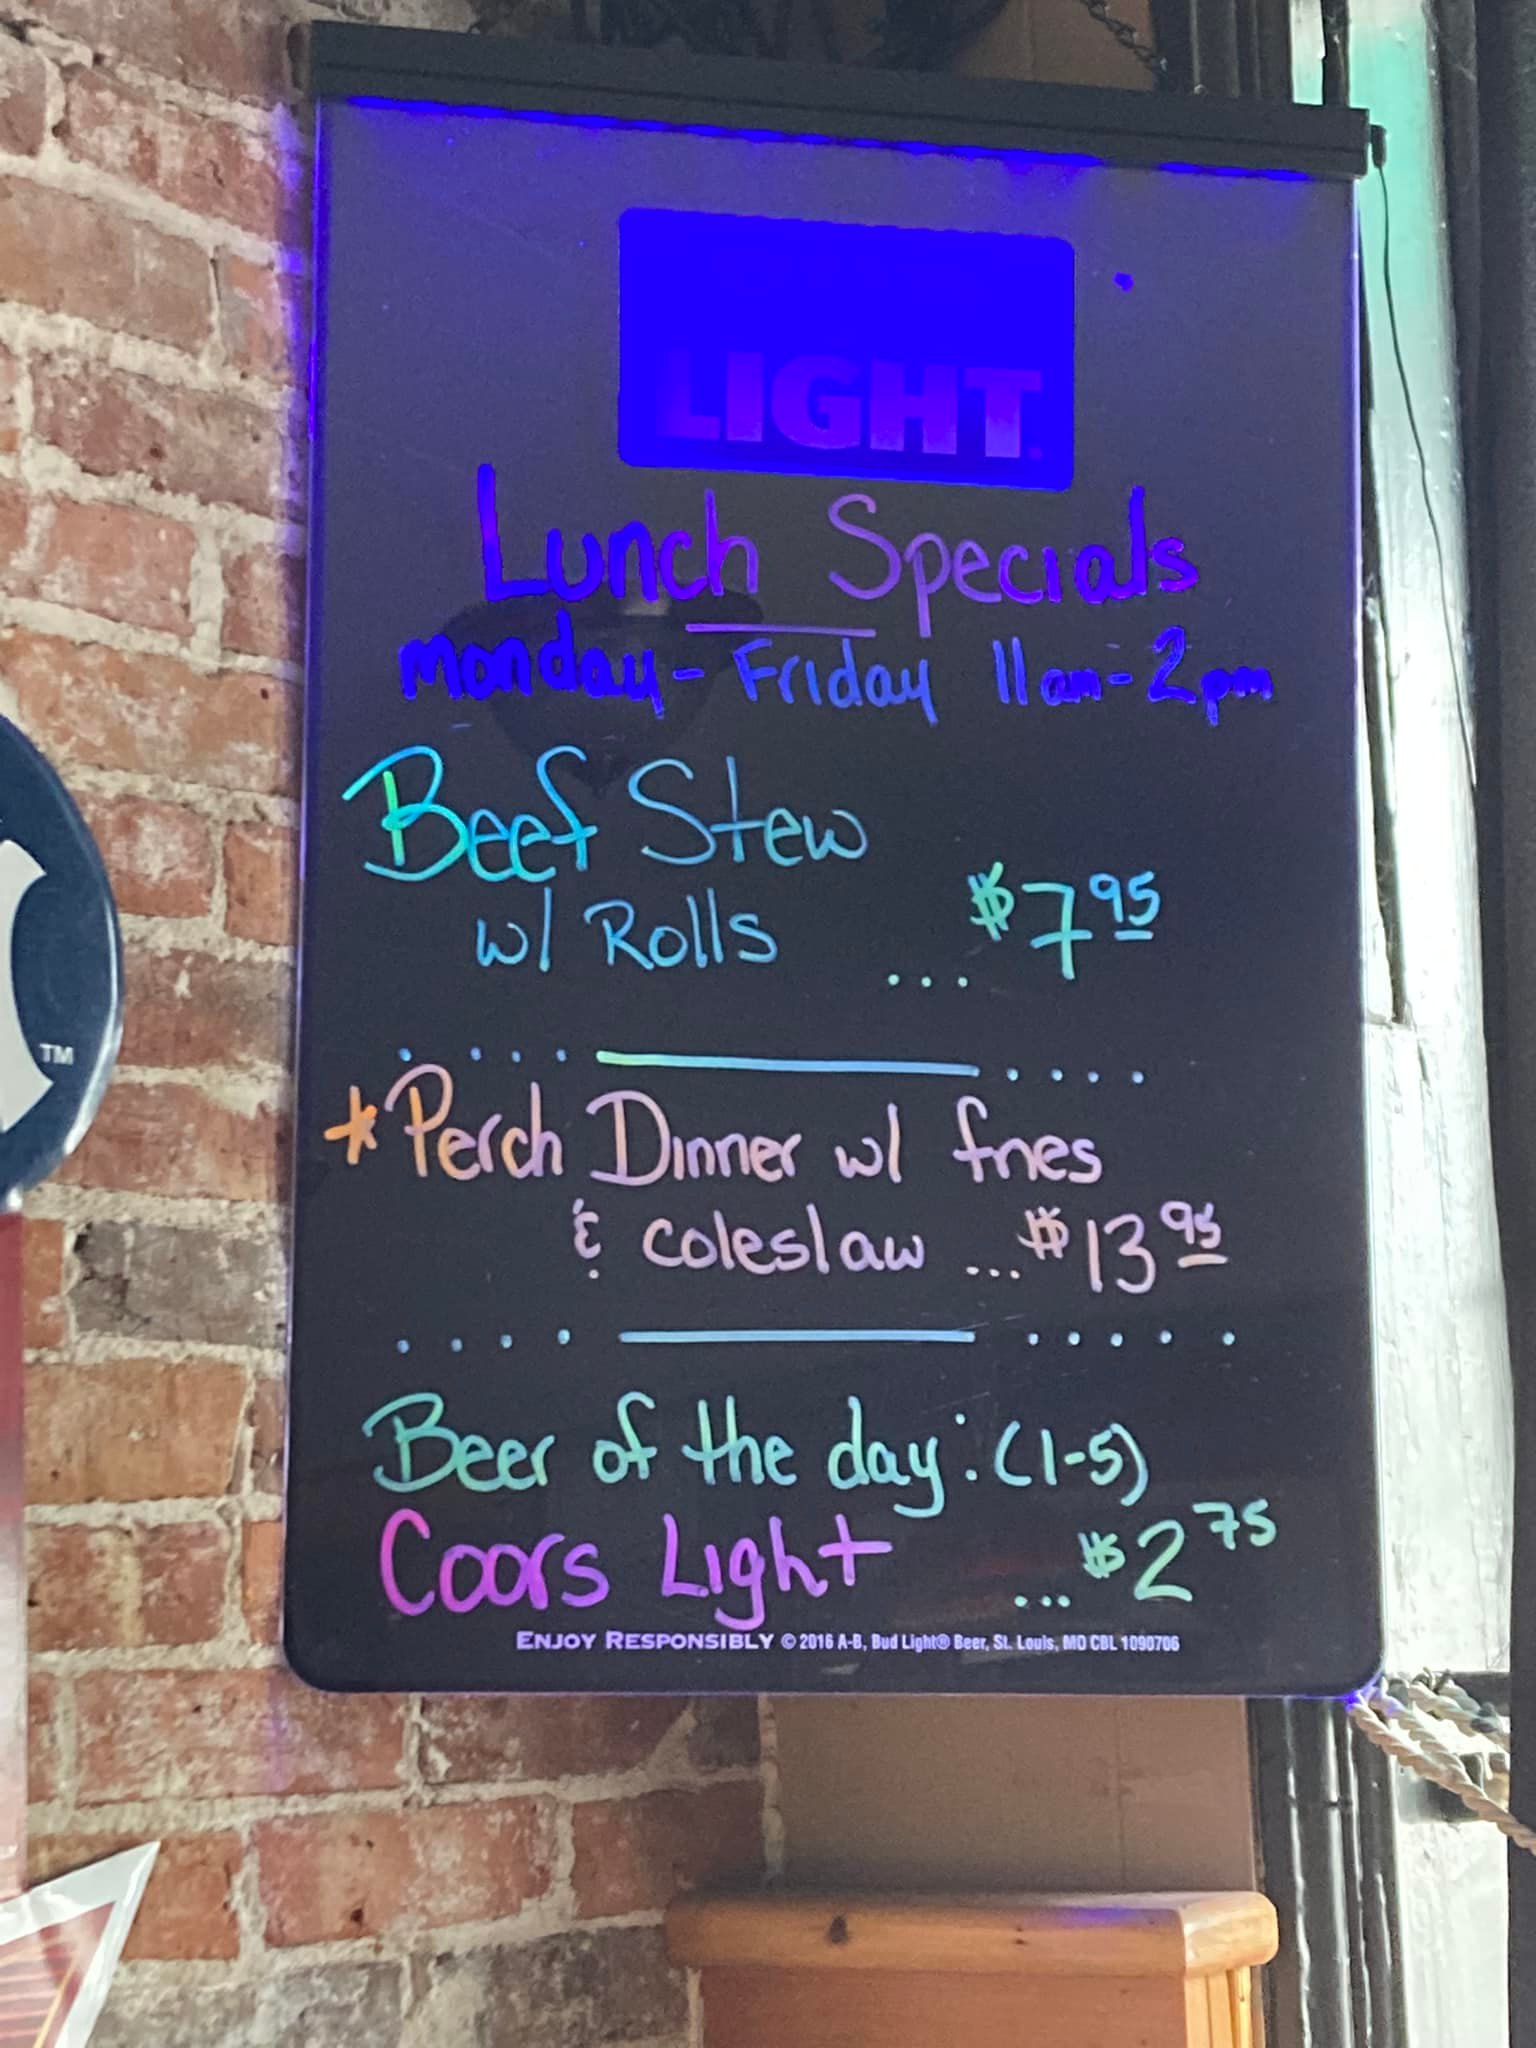 LIGHT
Lunch Specials
Monday - Friday 11am - 2pm
Beef Stew
w/ Rolls ... $7 95
* Perch Dinner w/ fries
& coleslaw ... $13 95
Beer of the day: (1-5)
Coors Light ... $2 75
ENJOY RESPONSIBLY © 2016 A-B, Bud Light® Beer, St. Louis, MO CBL 1090706
TM